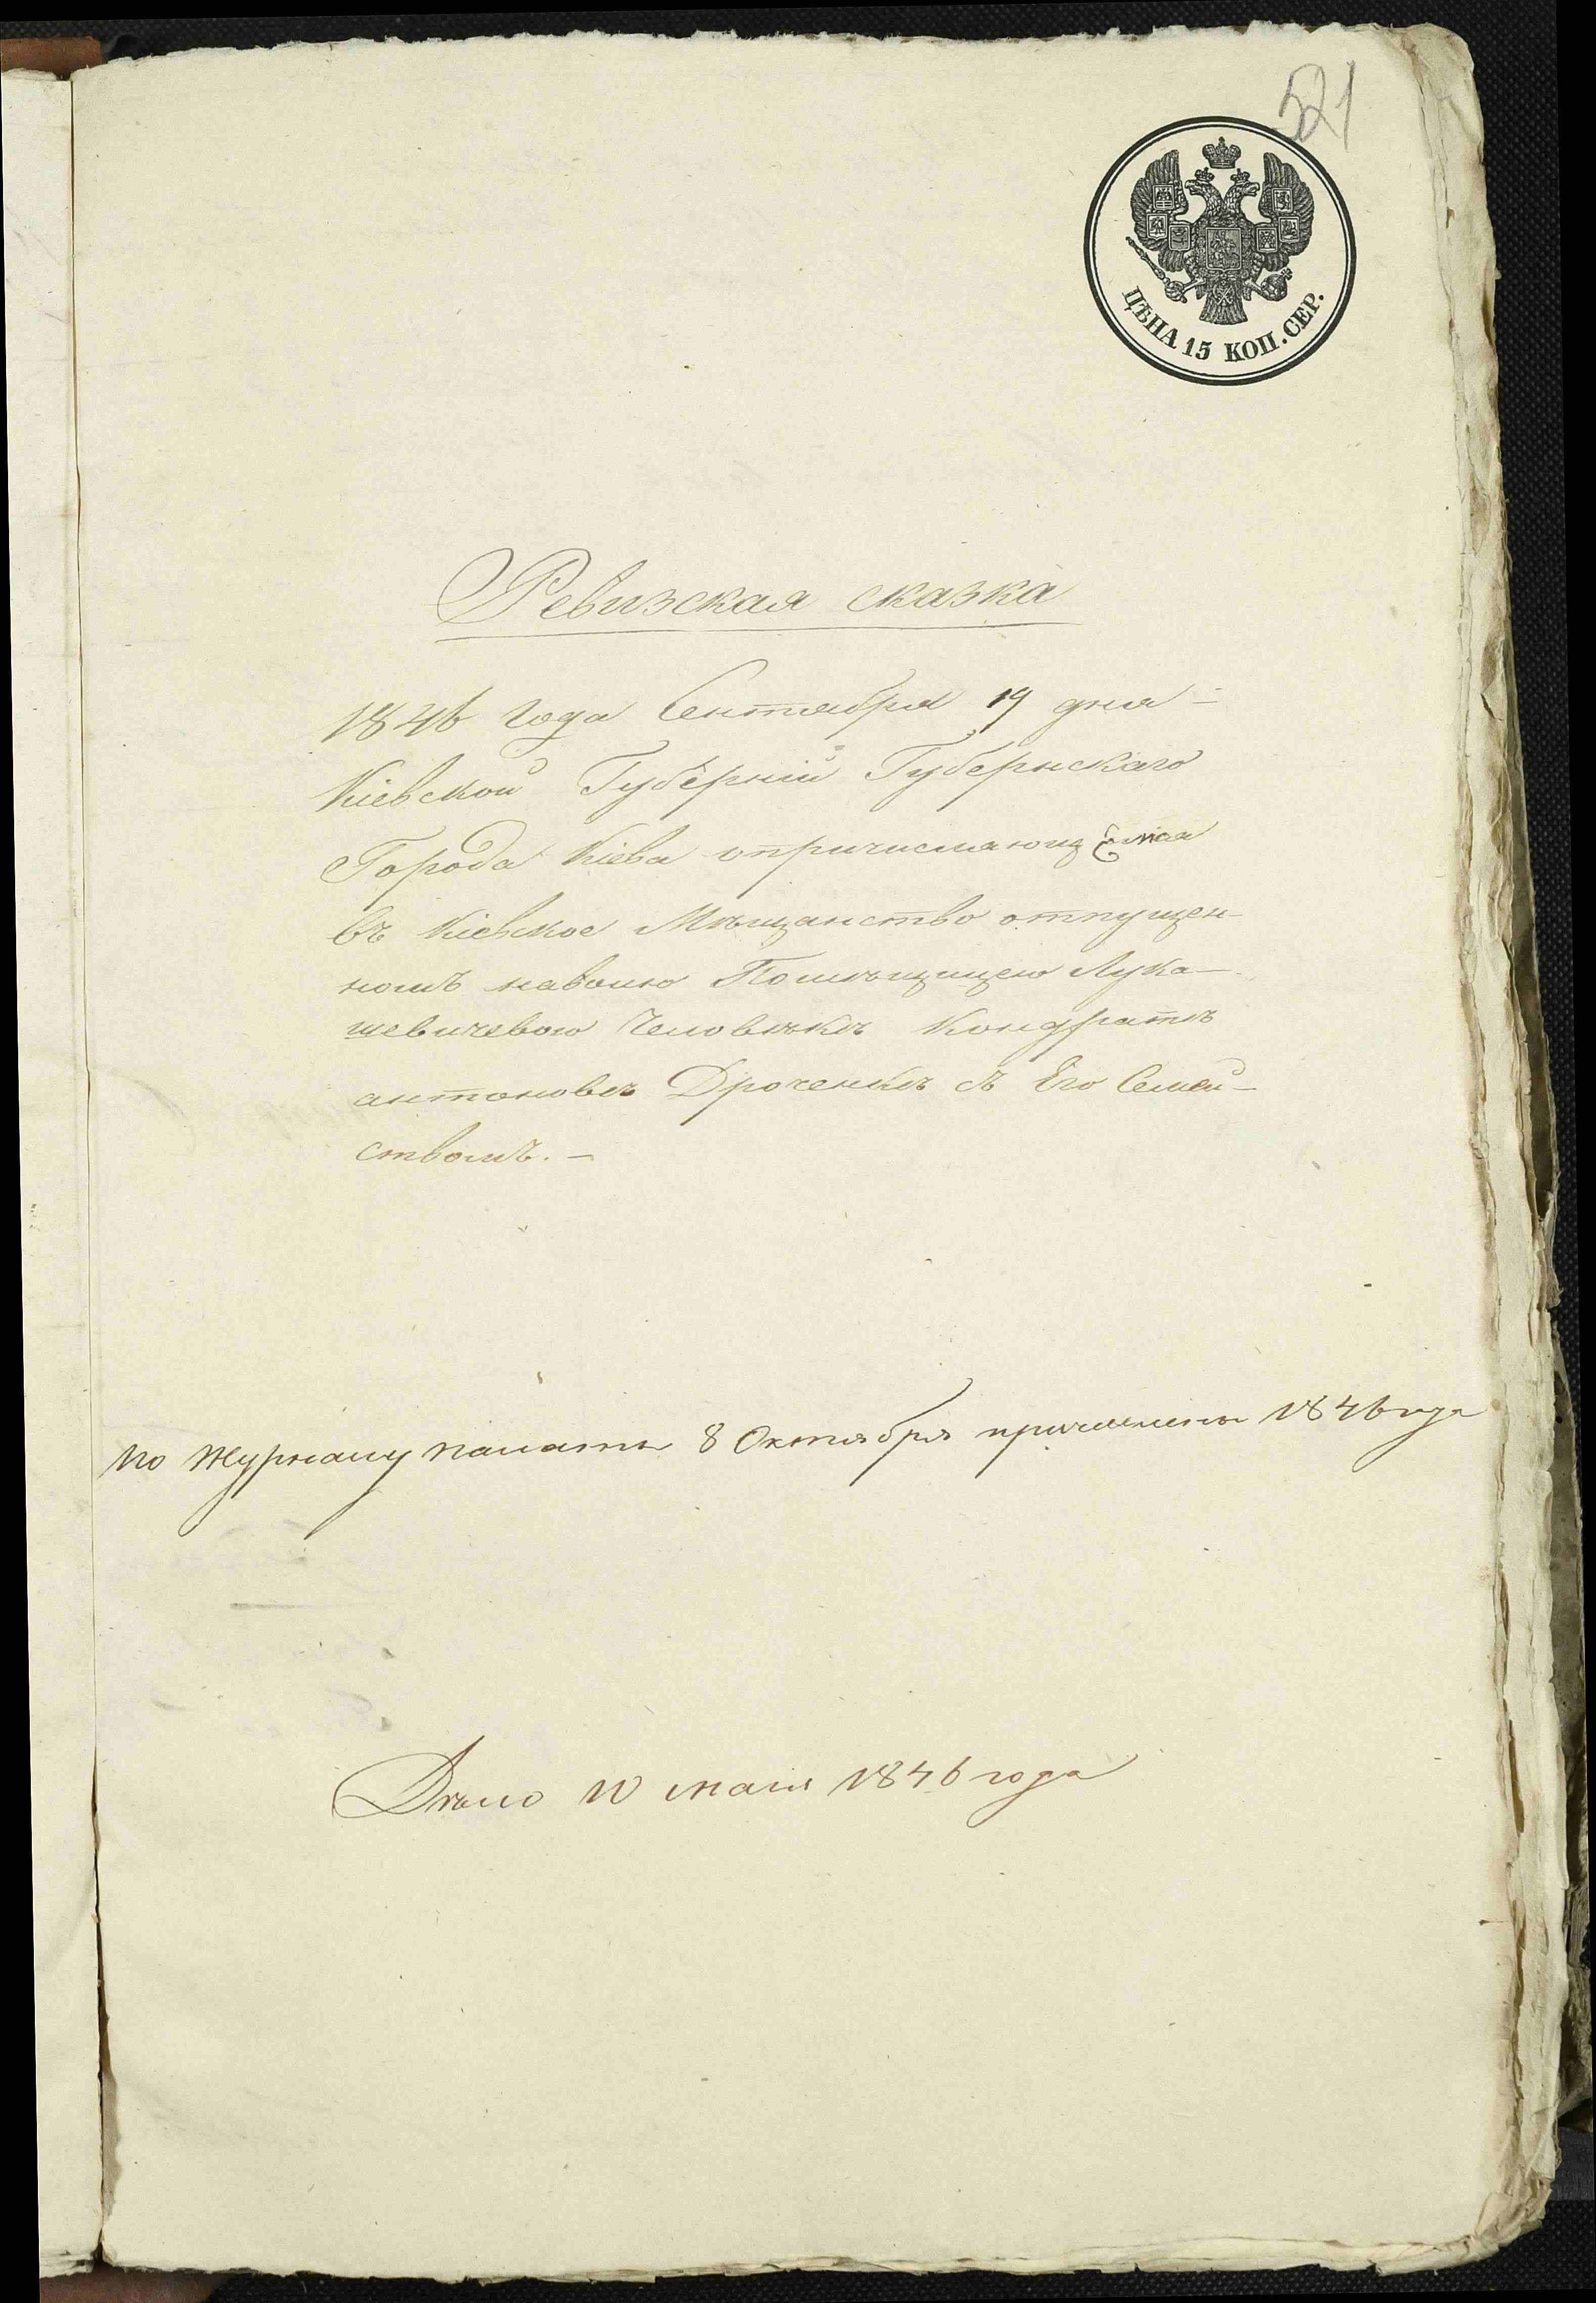 521
ЦѢНА 15 КОП. СЕР.
Ревизская сказка
1846 года Сентября 19 дня -
Кіевской Губерніи Губернскаго
Города Кіева опричисляющемся
въ Кіевское Мѣщанство отпущен-
номъ наволю Помѣщицею Лука-
шевичевою Человѣкѣ Кондратѣ
антоновѣ Дроченкѣ съ Его Семей-
ствомъ. -
По журналу палаты 8 Октября причислены 1846 года
Дѣло 10 мая 1846 года